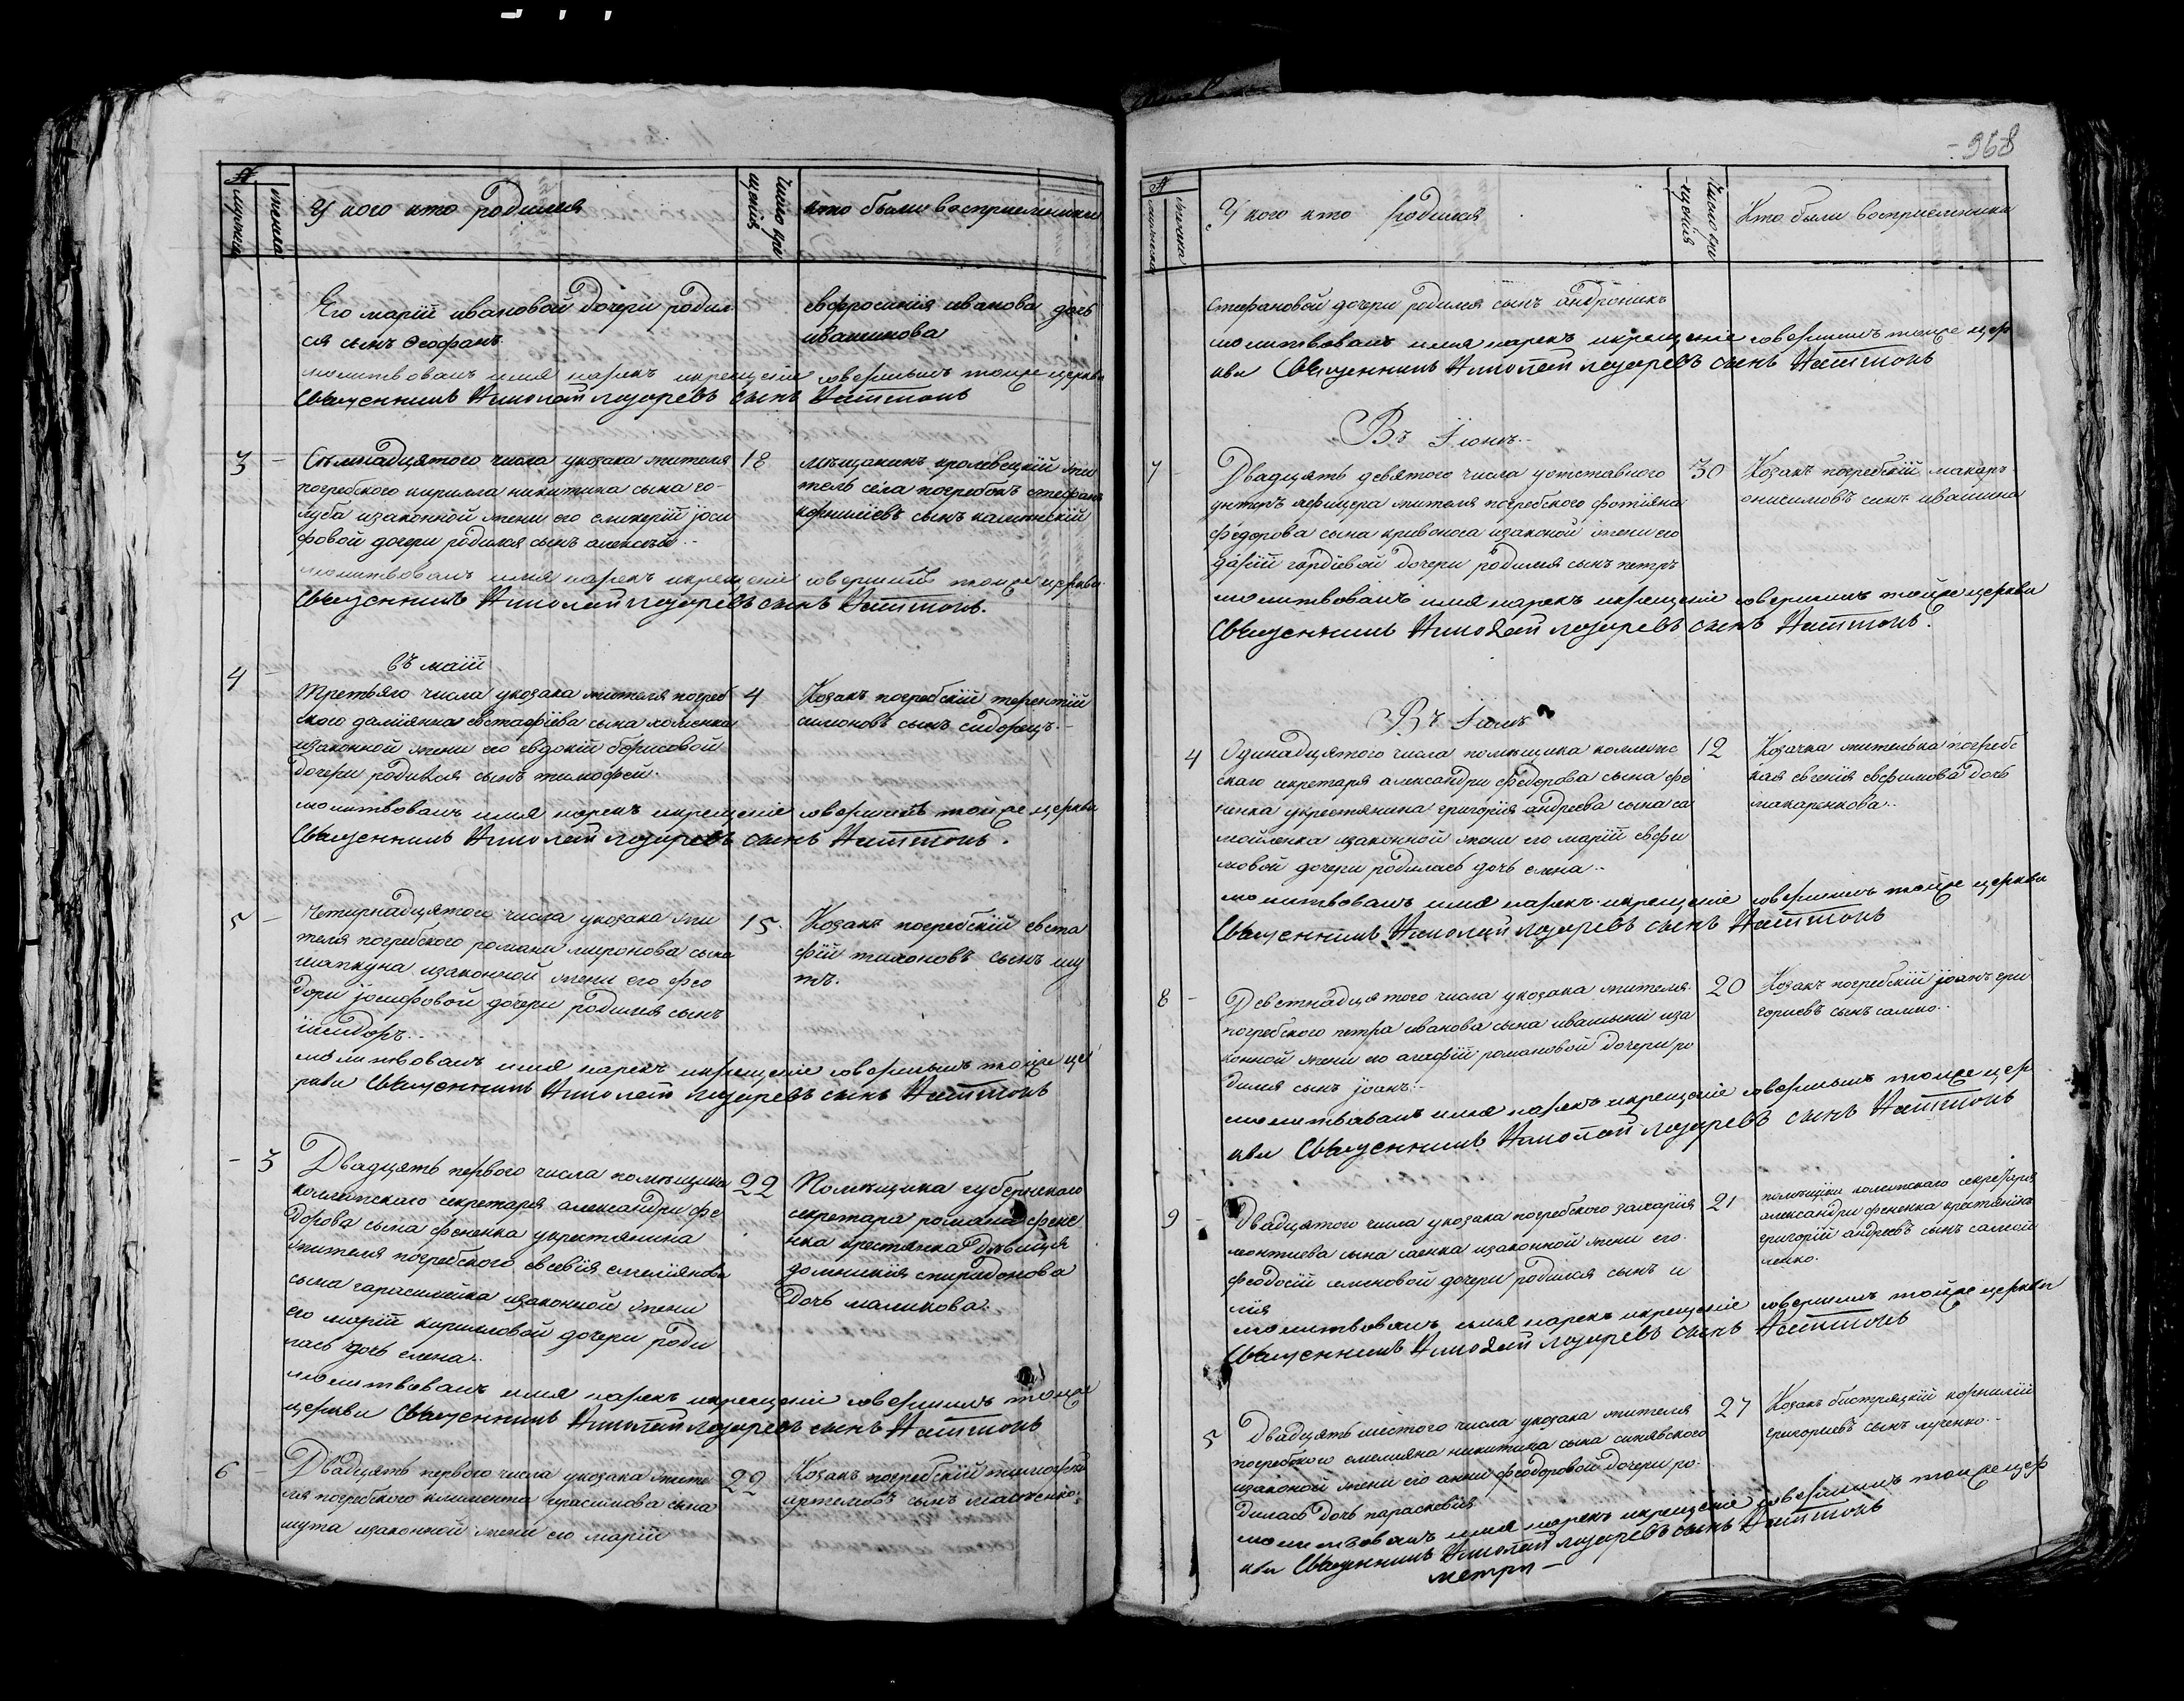 №
мужеска
женска
У кого кто родился
Число кре
щенія
кто были восприемники
Его маріи ивановой дочери родил
ся сынъ Феофанъ
евфросинія иванова дочь
ивашинова
молитвовалъ имя нарекъ икрещеніе совершилъ тоиже церкви
Священникъ Николай лазаревъ сынъ
3
Съмнадцятого числа укозака жителя
18
погребского кирилла никитина сына го-
луба изаконной жени его гликеріи јоси
фовой дочери родился сынъ алексъй
мъщанинъ кролевецкій жи
тель села погребокъ стефанъ
корниліевъ сынъ калинскій
молитвовалъ имя нарекъ икрещеніе совершилъ тоиже церкви
Священникъ Николай лазаревъ сынъ
въ маіи
4
Третьяго числа укозака жителя погреб
4
ского даміяна евстафіева сына хоменка
изаконной жени его евдокіи борисовой
дочери родился сынъ тимофей
Козакъ погребскій терентій
симоновъ сынъ сидорецъ
молитвовалъ имя нарекъ икрещеніе совершилъ тоиже церкви
Священникъ Николай лазаревъ сынъ
5
Четирнадцятого числа укозака жи
15
теля погребского романа миронова сына
шапкуна изаконной жени его фео
дори јосифовой дочери родился сынъ
ісидоръ
Козакъ погребскій евста
фій тихоновъ сынъ шу
тъ.
молитвовалъ имя нарекъ икрещеніе совершилъ тоиже це
ркви Священникъ Николай лазаревъ сынъ
3
Двадцять первого числа помъщика
22
коллежскаго секретаря александри фе
дорова сына фененка укрестянина
жителя погребского евсевія емеліянова
сына гарасимейка изаконной жени
его маріи кириловой дочери роди
лась дочь елена
Помъщика губернскаго
секретара романа фене
нка крестянка дъвиця
домникія спиридонова
дочь маликова
молитвовалъ имя нарекъ икрещеніе совершилъ тоиже
церкви Священникъ Николай лазаревъ сынъ
6
Двадцять первого числа укозака жите
22
ля погребского климента герасимова сына
шута изаконной жени его маріи
Козакъ погребскій тимофей
артемовъ сынъ
968
№
мужеска
женска
У кого кто родился
Число кре
щенія
Кто были восприемники
стефановой дочери родился сынъ андроникъ
молитвовалъ имя нарекъ икрещеніе совершилъ тоиже цер
кви Священникъ Николай лазаревъ сынъ
Въ Іюнъ
7
Двадцять девятого числа уотставного
30
унтеръ афицера жителя погребского фотіяна
федорова сына кривоноса изаконой жени его
даріи гордіевой дочери родился сынъ петръ
Козакъ погребскій макаръ
онисимовъ синъ ивашина
молитвовалъ имя нарекъ икрещеніе совершилъ тоиже церкви
Священникъ Николай лазаревъ сынъ
Въ Іюлъ
4
Одинадцятого числа помъщика коллежс
12
скаго секретаря александри федорова сына фе
ненка укрестянина григорія андреева сына са
мойленка изаконной жени его маріи евфи
мовой дочери родилась дочь елена
Козачка жителька погребс
кая евгенія евфимова дочь
макаренкова
молитвовалъ имя нарекъ икрещеніе совершилъ тоиже церкви
Священникъ Николай лазаревъ сынъ
8
Деветнадцятого числа укозака жителя
20
погребского петра иванова сына ивашини иза
конной жени его агафіи романовой дочери ро
дился сынъ јоанъ
Козакъ погребскій јоанъ гри
гориевъ сынъ
молитвовалъ имя нарекъ икрещеніе совершилъ тоиже цер
кви Священникъ Николай лазаревъ сынъ
9
Двадцятого числа укозака погребского захарія
21
леонтиева сына изаконной жени его
феодосіи семеновой дочери родился сынъ и
лія
помъщика колежскаго секретаря
александри фененка крестянинъ
григорій андреевъ сынъ самой
ленко.
молитвовалъ имя нарекъ икрещеніе совершилъ тоиже церкви
Священникъ Николай лазаревъ сынъ
5
Двадцять шестого числа укозака жителя
27
погребского емеліяна никитина сына синявского
изаконой жени его анни феодоровой дочери ро-
дилась дочь параскевія
Козакъ быстрицкій корнилій
григориевъ сынъ луценко
молитвовалъ имя нарекъ икрещеніе совершилъ тоиже цер
кви Священникъ Николай лазаревъ сынъ